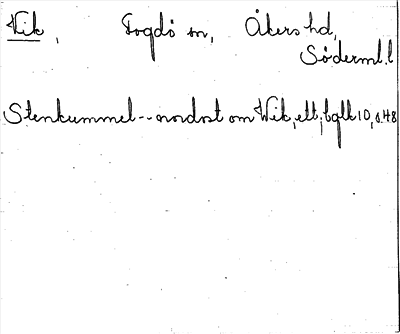 Vik, Fogdö sn, Åkers hd,
Söderml.l
Stenkummel -- nordost om Wik, ett, bglb 10, s.48